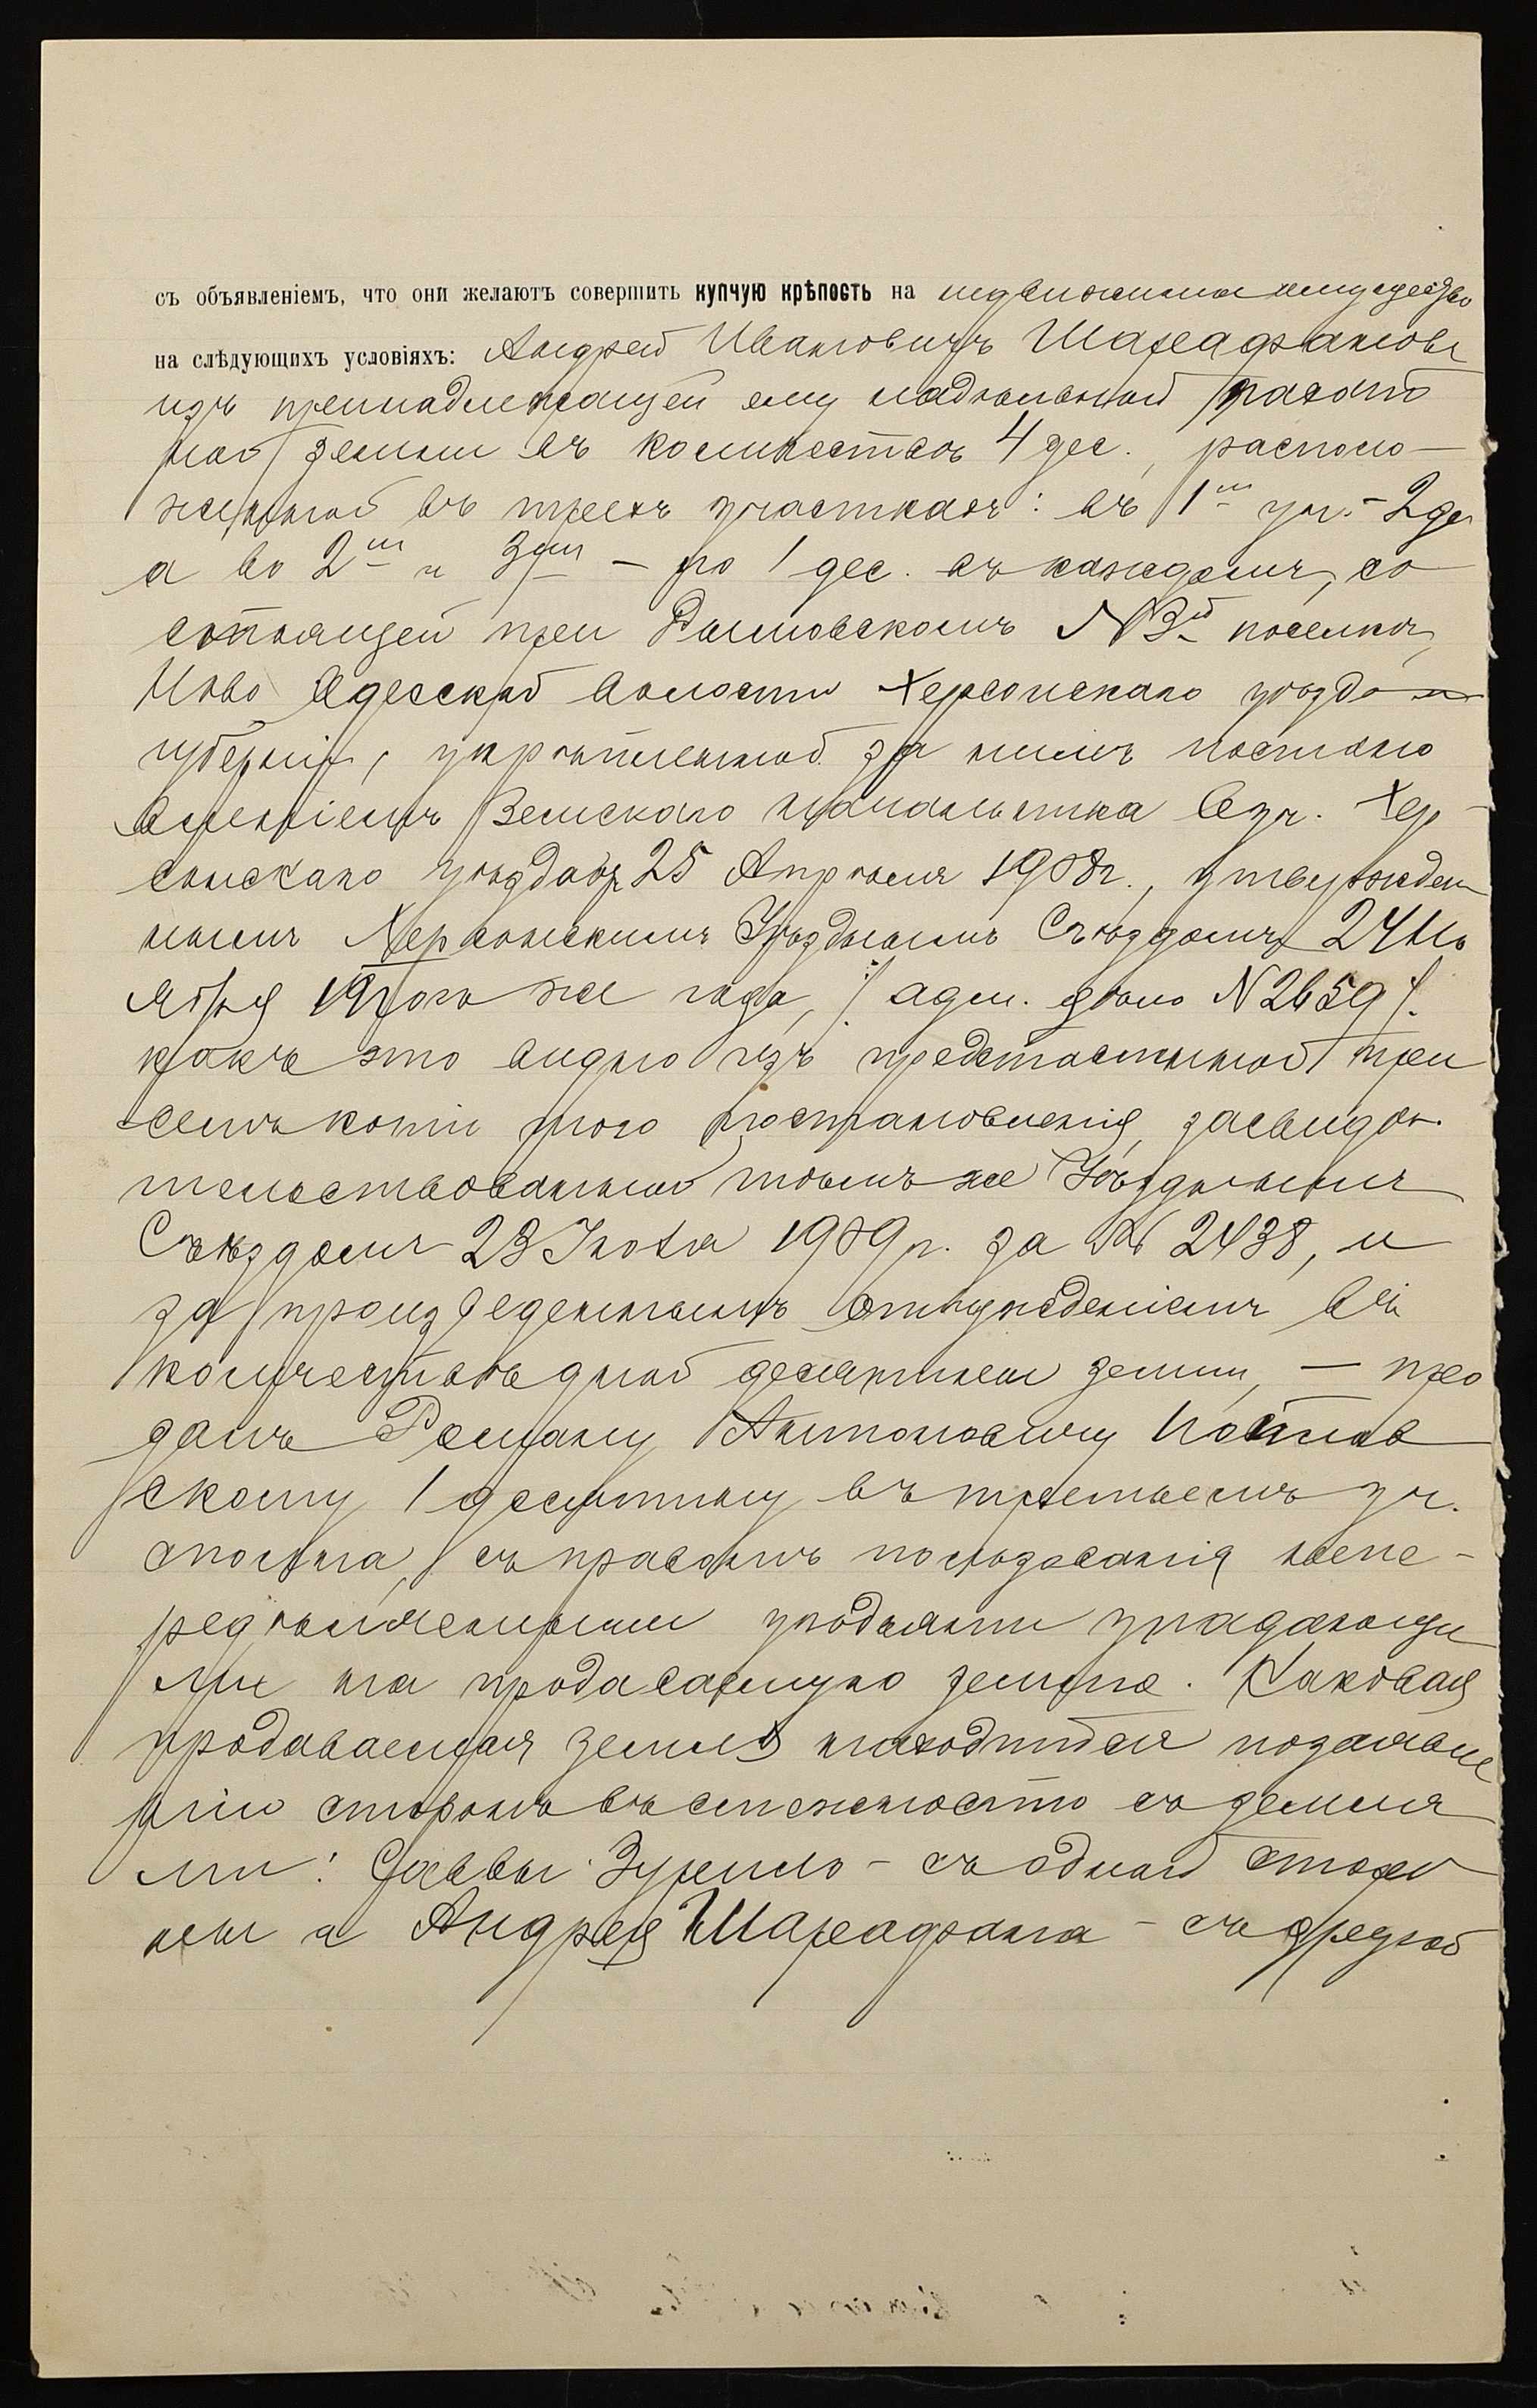 съ объявленіемъ, что они желаютъ совершить купчую крѣпость на недвижимое имущество
на слѣдующихъ условіяхъ: Андрей Ивановичъ
изъ принадлежащей ему надѣльной
ной земли въ количествѣ 4 дес., располо-
женной въ трехъ участкахъ: въ 1ᵐ уч. - 2 дес
а во 2ᵐ и 3ᵐ — по 1 дес. въ каждомъ, со
стоящей при № 3й поселкѣ,
Ново Одесской волости Херсонскаго уѣзда и
губерніи, укрѣпленной за нимъ постано
вленіемъ Земскаго Начальника 6 уч. Хер-
сонскаго уѣзда отъ 25 Апрѣля 1908 г., утвержден
нымъ Херсонскимъ Уѣзднымъ Съѣздомъ 24 Но
ября того же года, /: адм. дѣло N 2659 :/.
какъ это видно изъ представленной при
семъ копіи того постановленія, засвидѣ-
тельствованной тѣмъ же Уѣзднымъ
Съѣздомъ 23 1909 г. за № 2438, и
за произведеннымъ отчужденіемъ въ
количествѣ одной десятины земли, — про
далъ Роману Антоновичу
скому 1 десятину въ третьемъ уч.
съ правомъ пользованія непе-
редѣляемыми угодьями упадающи
ми на продаваемую землю. Каковая
продаваемая земля находится по заявле
нію сторонъ въ смежности съ земля
ми: Саввы - съ одной сторо
ны и Андрея - съ другой